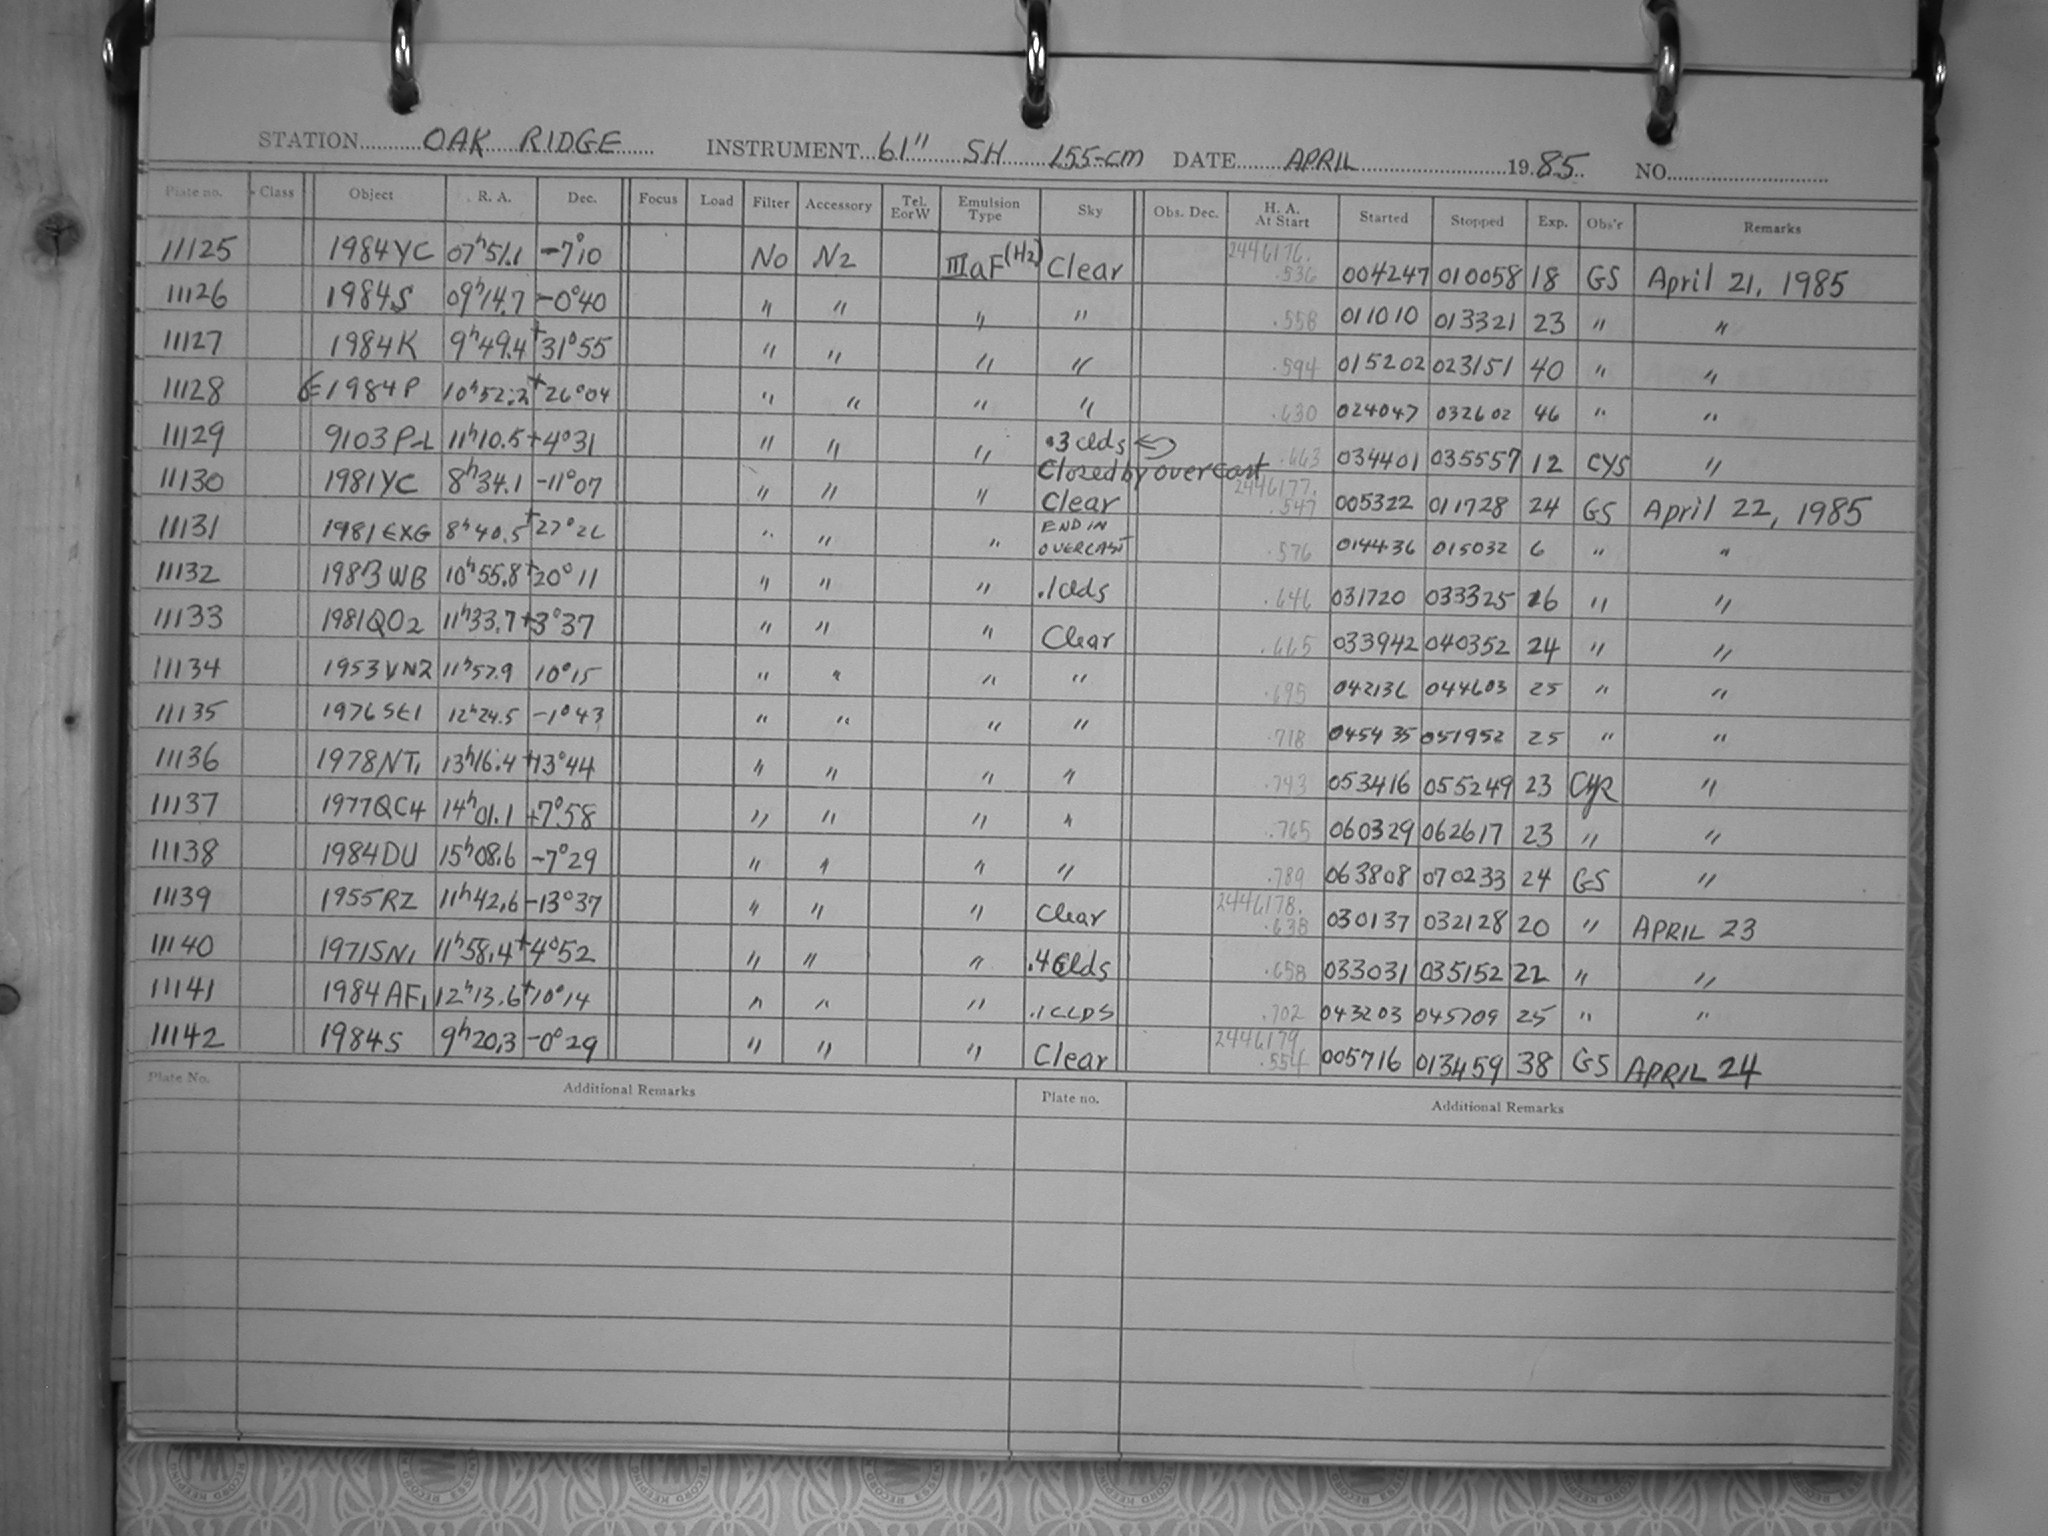 STATION OAK RIDGE INSTRUMENT 61" SH 155-cm DATE APRIL 1985 NO.
Plate no. Class Object R. A. Dec. Focus Load Filter Accessory Tel. EorW Emulsion Type Sky Obs. Dec. H. A. At Start Started Stopped Exp. Obs'r Remarks
11125 1984YC 07h51.1 -7°10 No N2 IIIaF(H2) Clear 2446176. .536 004247 010058 18 GS April 21, 1985
11126 1984S 09h14.7 -0°40 " " " " .558 011010 013321 23 " "
11127 1984K 9h49.4 +31°55 " " " " .594 015202 023151 40 " "
11128 1984P 10h52.2 +26°04 " " " " .630 024047 032602 46 " "
11129 9103P-L 11h10.5 +4°31 " " " .3 clds .663 034401 035557 12 CYS "
Closed by overcast
11130 1981YC 8h34.1 -11°07 " " " Clear 2446177. .547 005322 011728 24 GS April 22, 1985
11131 1981EXG 8h40.5 +27°26 " " " END IN OVERCAST .576 014436 015032 6 " "
11132 1983WB 10h55.8 +20°11 " " " .1clds .646 031720 033325 16 " "
11133 1981QO2 11h33.7 +3°37 " " " Clear .665 033942 040352 24 " "
11134 1953VN2 11h57.9 10°15 " " " " .695 042136 044603 25 " "
11135 1976SE1 12h24.5 -1°43 " " " " .718 045435 051952 25 " "
11136 1978NT1 13h16.4 +13°44 " " " " .743 053416 055249 23 CYR "
11137 1977QC4 14h01.1 +7°58 " " " " .765 060329 062617 23 " "
11138 1984DU 15h08.6 -7°29 " " " " .789 063808 070233 24 GS "
11139 1955RZ 11h42.6 -13°37 " " " Clear 2446178. .638 030137 032128 20 " APRIL 23
11140 1971SN1 11h58.4 +4°52 " " " .4 Clds .658 033031 035152 22 " "
11141 1984AF1 12h13.6 +10°14 " " " .1CLDS .702 043203 045709 25 " "
11142 1984S 9h20.3 -0°29 " " " Clear 2446179 .554 005716 013459 38 GS APRIL 24
Plate No. Additional Remarks Plate no. Additional Remarks